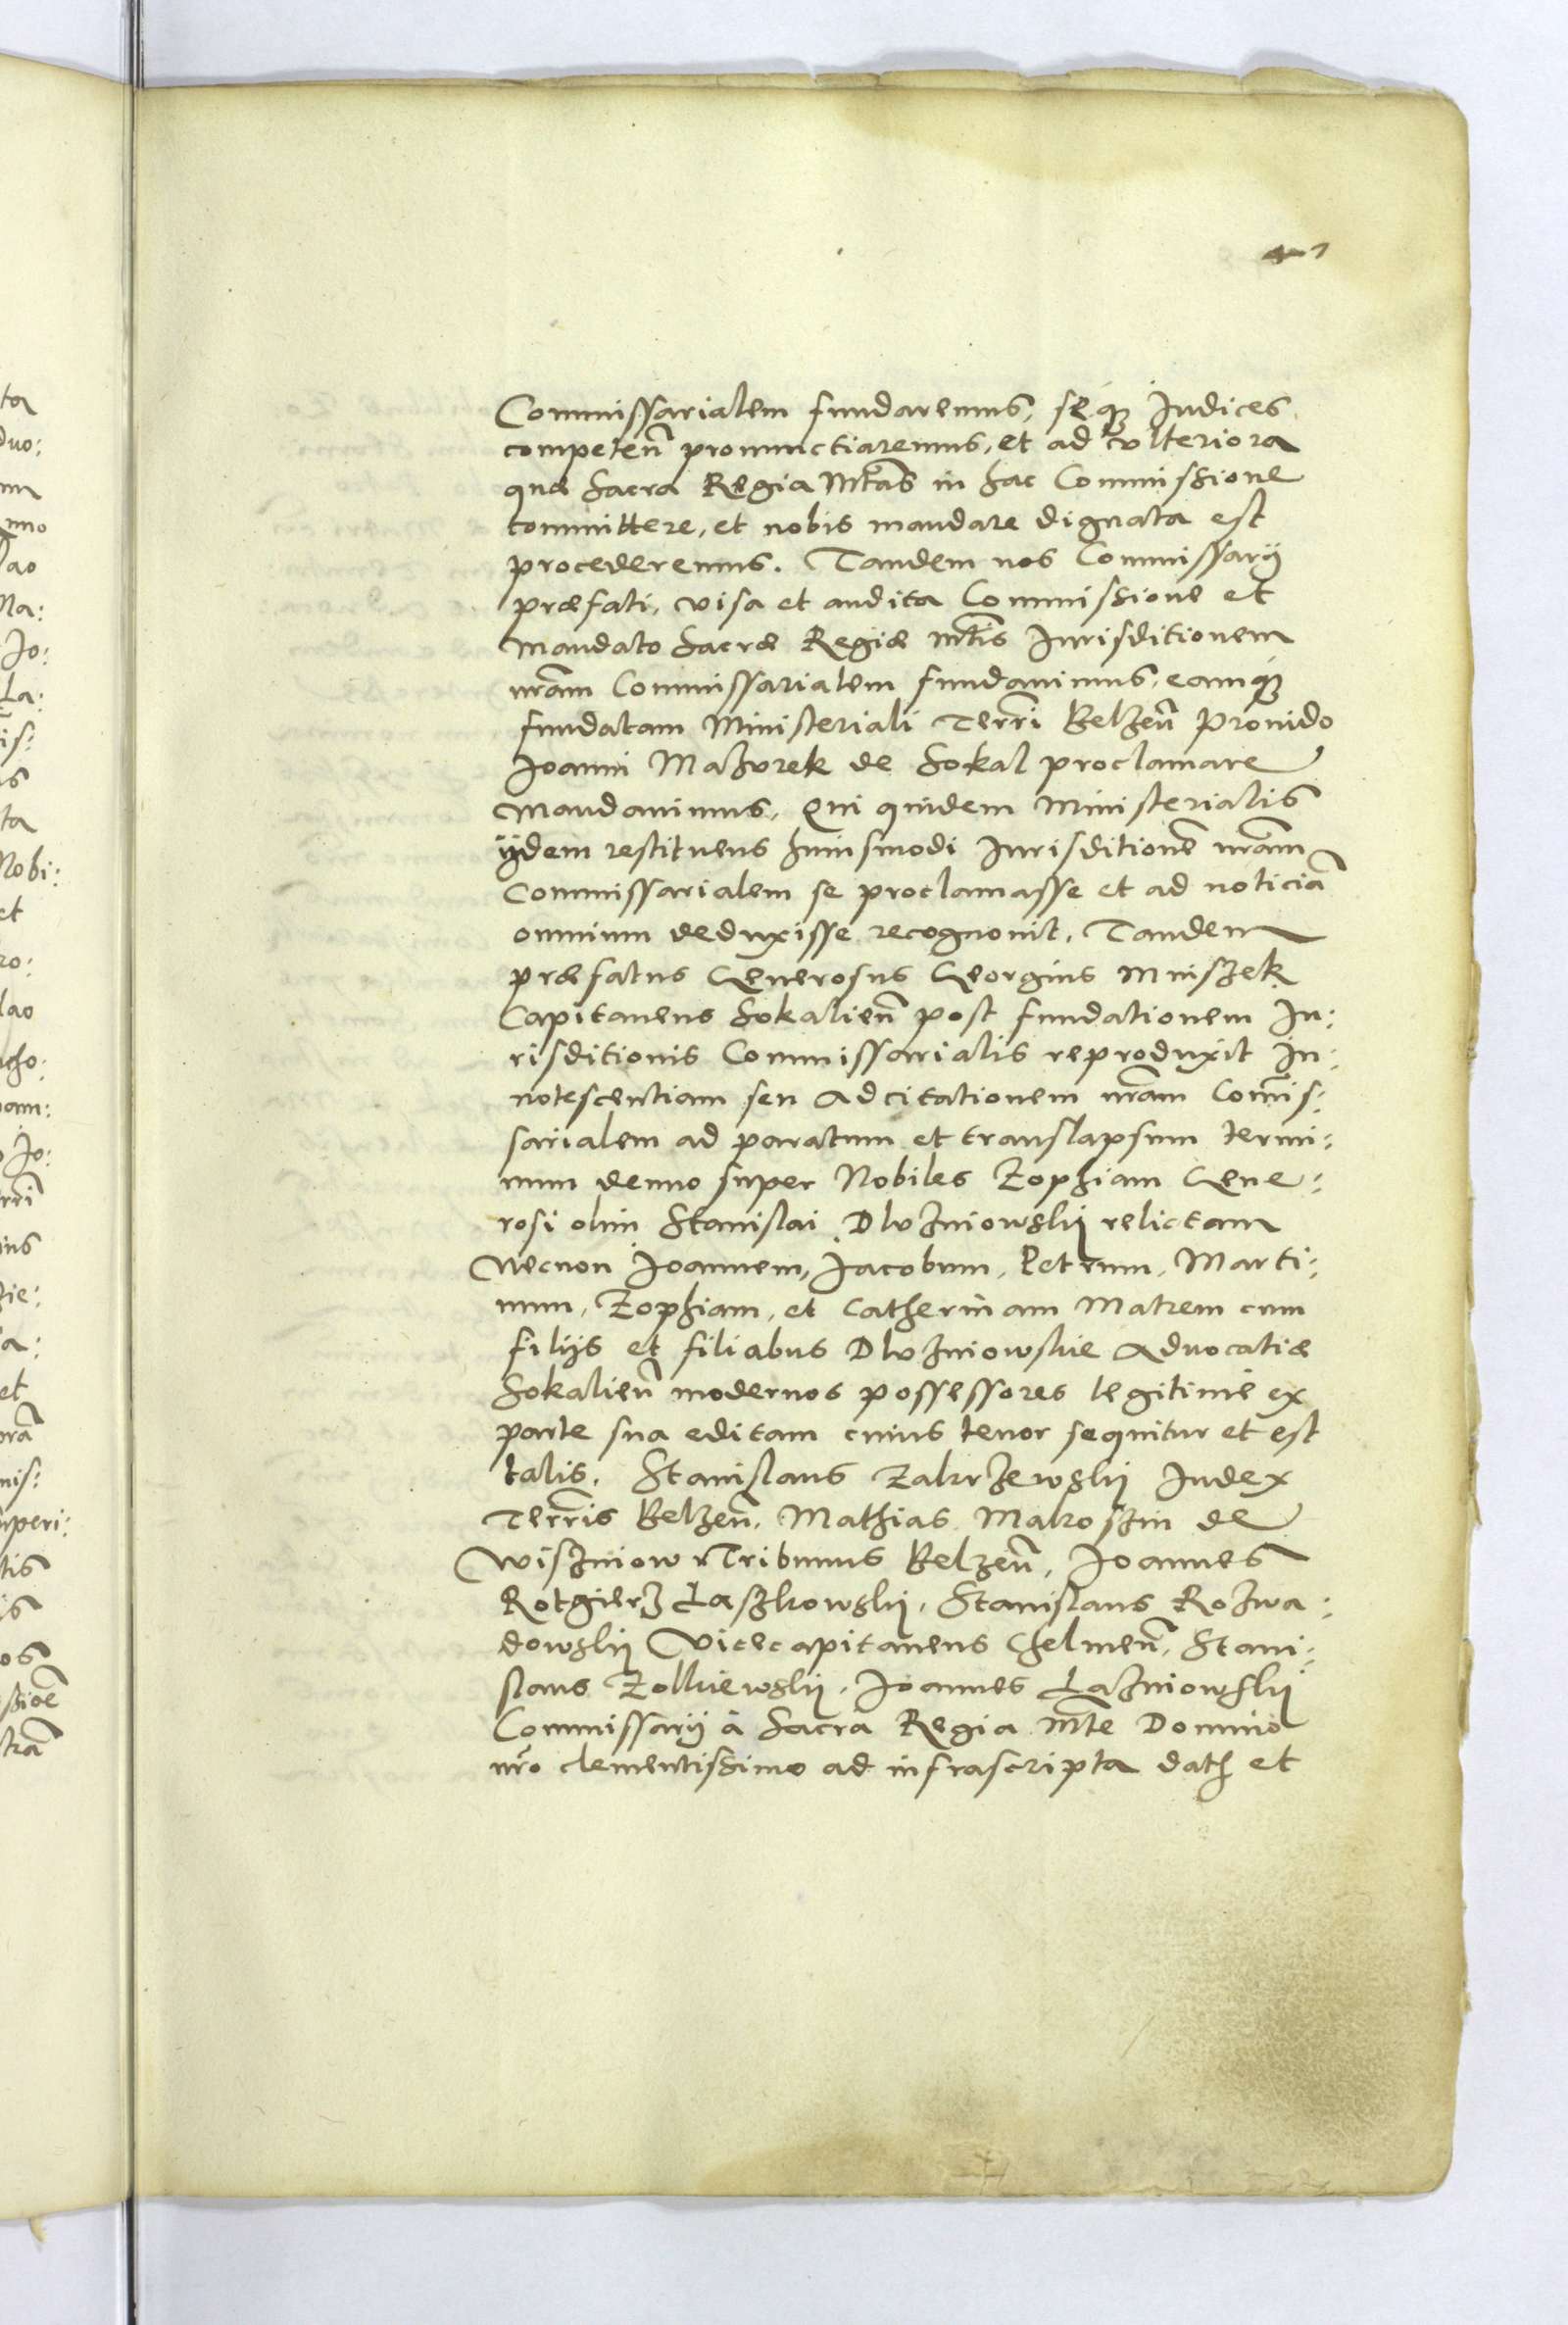 Commissarialem fundaremus, seq₃ Iudices
competen̄ pronunctiaremus, et ad vlteriora
quæ Sacra Regia Mtās in hac Commissione
committere, et nobis mandare dignata est
procederemus. Tandem nos Commissarij
præfati, visa et audita Commissione et
Mandato Sacræ Regiæ Mtīs Iurisditionem
nrām Commissarialem fundauimus, eamq₃
fundatam Ministeriali Terrī Belzen̄ Prouido
Ioanni Mazurek de Sokal proclamare
Mandauimus, Qui quidem Ministerialis
ijdem restituens huiusmodi Iurisditionē nrām
Commissarialem se proclamasse et ad noticiā
omnium deduxisse recognouit. Tandem
præfatus Generosus Georgius Mniszek
Capitaneus Sokalien̄ post fundationem Iu:
risditionis Commissarialis reproduxit In:
notescentiam seu Adcitationem nrām Com̄is:
sarialem ad paratum et translapsum termi:
num denuo super Nobiles Zophiam Gene:
rosi olim Stanislai Dluzniowskij relictam
Necnon Ioannem, Iacobum, Petrum, Marti:
num, Zophiam, et Catherinam Matrem cum
filijs et filiabus Dluzniowskie Aduocatiæ
Sokalien̄ modernos possessores legitimè ex
parte sua editam cuius tenor sequitur et est
talis. Stanislaus Zakrzewskij Iudex
Terrīs Belzen̄, Mathias Makoszin de
Wiszniow Tribunus Belzen̄, Ioannes
Rotgierz Laszkowskij, Stanislaus Rozwa:
dowskij Vicecapitaneus Chelmen̄, Stani:
slaus Zolkiewskij, Ioannes Lazniowskij
Commissarij à Sacra Regia Mtē Domino
nrō clementissimo ad infrascripta dat et